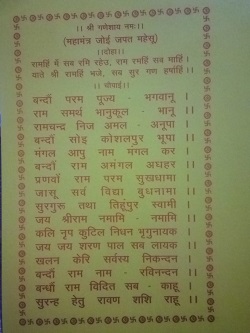 ।। श्री गणेशाय नमः ।।
(महामंत्र जोई जपत महेसू)
।। दोहा ।।
रामहिं में सब रमि रहेउ, राम रमहिं सब माहिं
याते श्री रामहिं भजे, सब सुर गण हर्षाहिं ।।
।। चौपाई ।।
बन्दौं परम पूज्य - भगवानू ।
राम समर्थ भानुकूल - भानू ।।
रामचन्द्र निज अमल - अनूपा ।
बन्दौं सोइ कोशलपुर भूपा ।।
मंगल आपु नाम मंगल कर ।
बन्दौं राम अमंगल अघहर ।।
प्रणवौं राम परम सुखधामा ।
जासू सर्व विद्या बुधनामा ।।
सुरगुरू तथा तिहुंपुर स्वामी ।
जय श्रीराम नमामि - नमामि ।।
कलि नृप कुटिल निधन भृगुनायक ।
जय जय शरण पाल सब लायक ।।
खलन केरि सर्वस्य निकन्दन ।
बन्दौं राम नाम रविनन्दन ।।
बन्धौं राम विदित सब - काहू ।
सुरन्ह हेतु रावण शशि राहू ।।